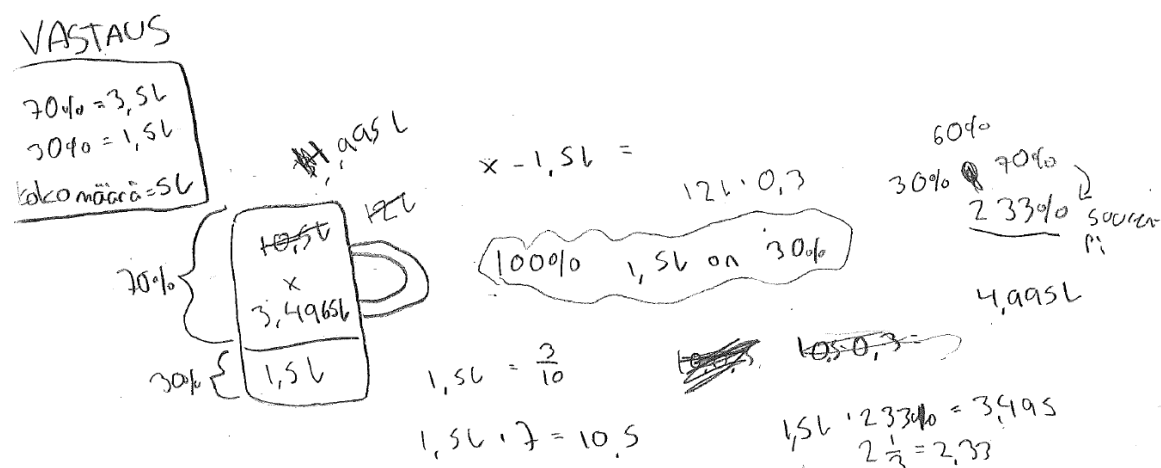 VASTAUS
70% = 3,5L
30% = 1,5L
koko määrä = 5L
,995L
10,5L
12L
70%
x
3,4965L
30%
1,5L
x - 1,5L =
12L · 0,3
100% 1,5L on 30%
1,5L = 3/10
1,5L · 7 = 10,5
60%
30% 70%
233%
4,995L
10,5·0,3=
1,5L · 233% = 3,495
2 1/3 = 2,33